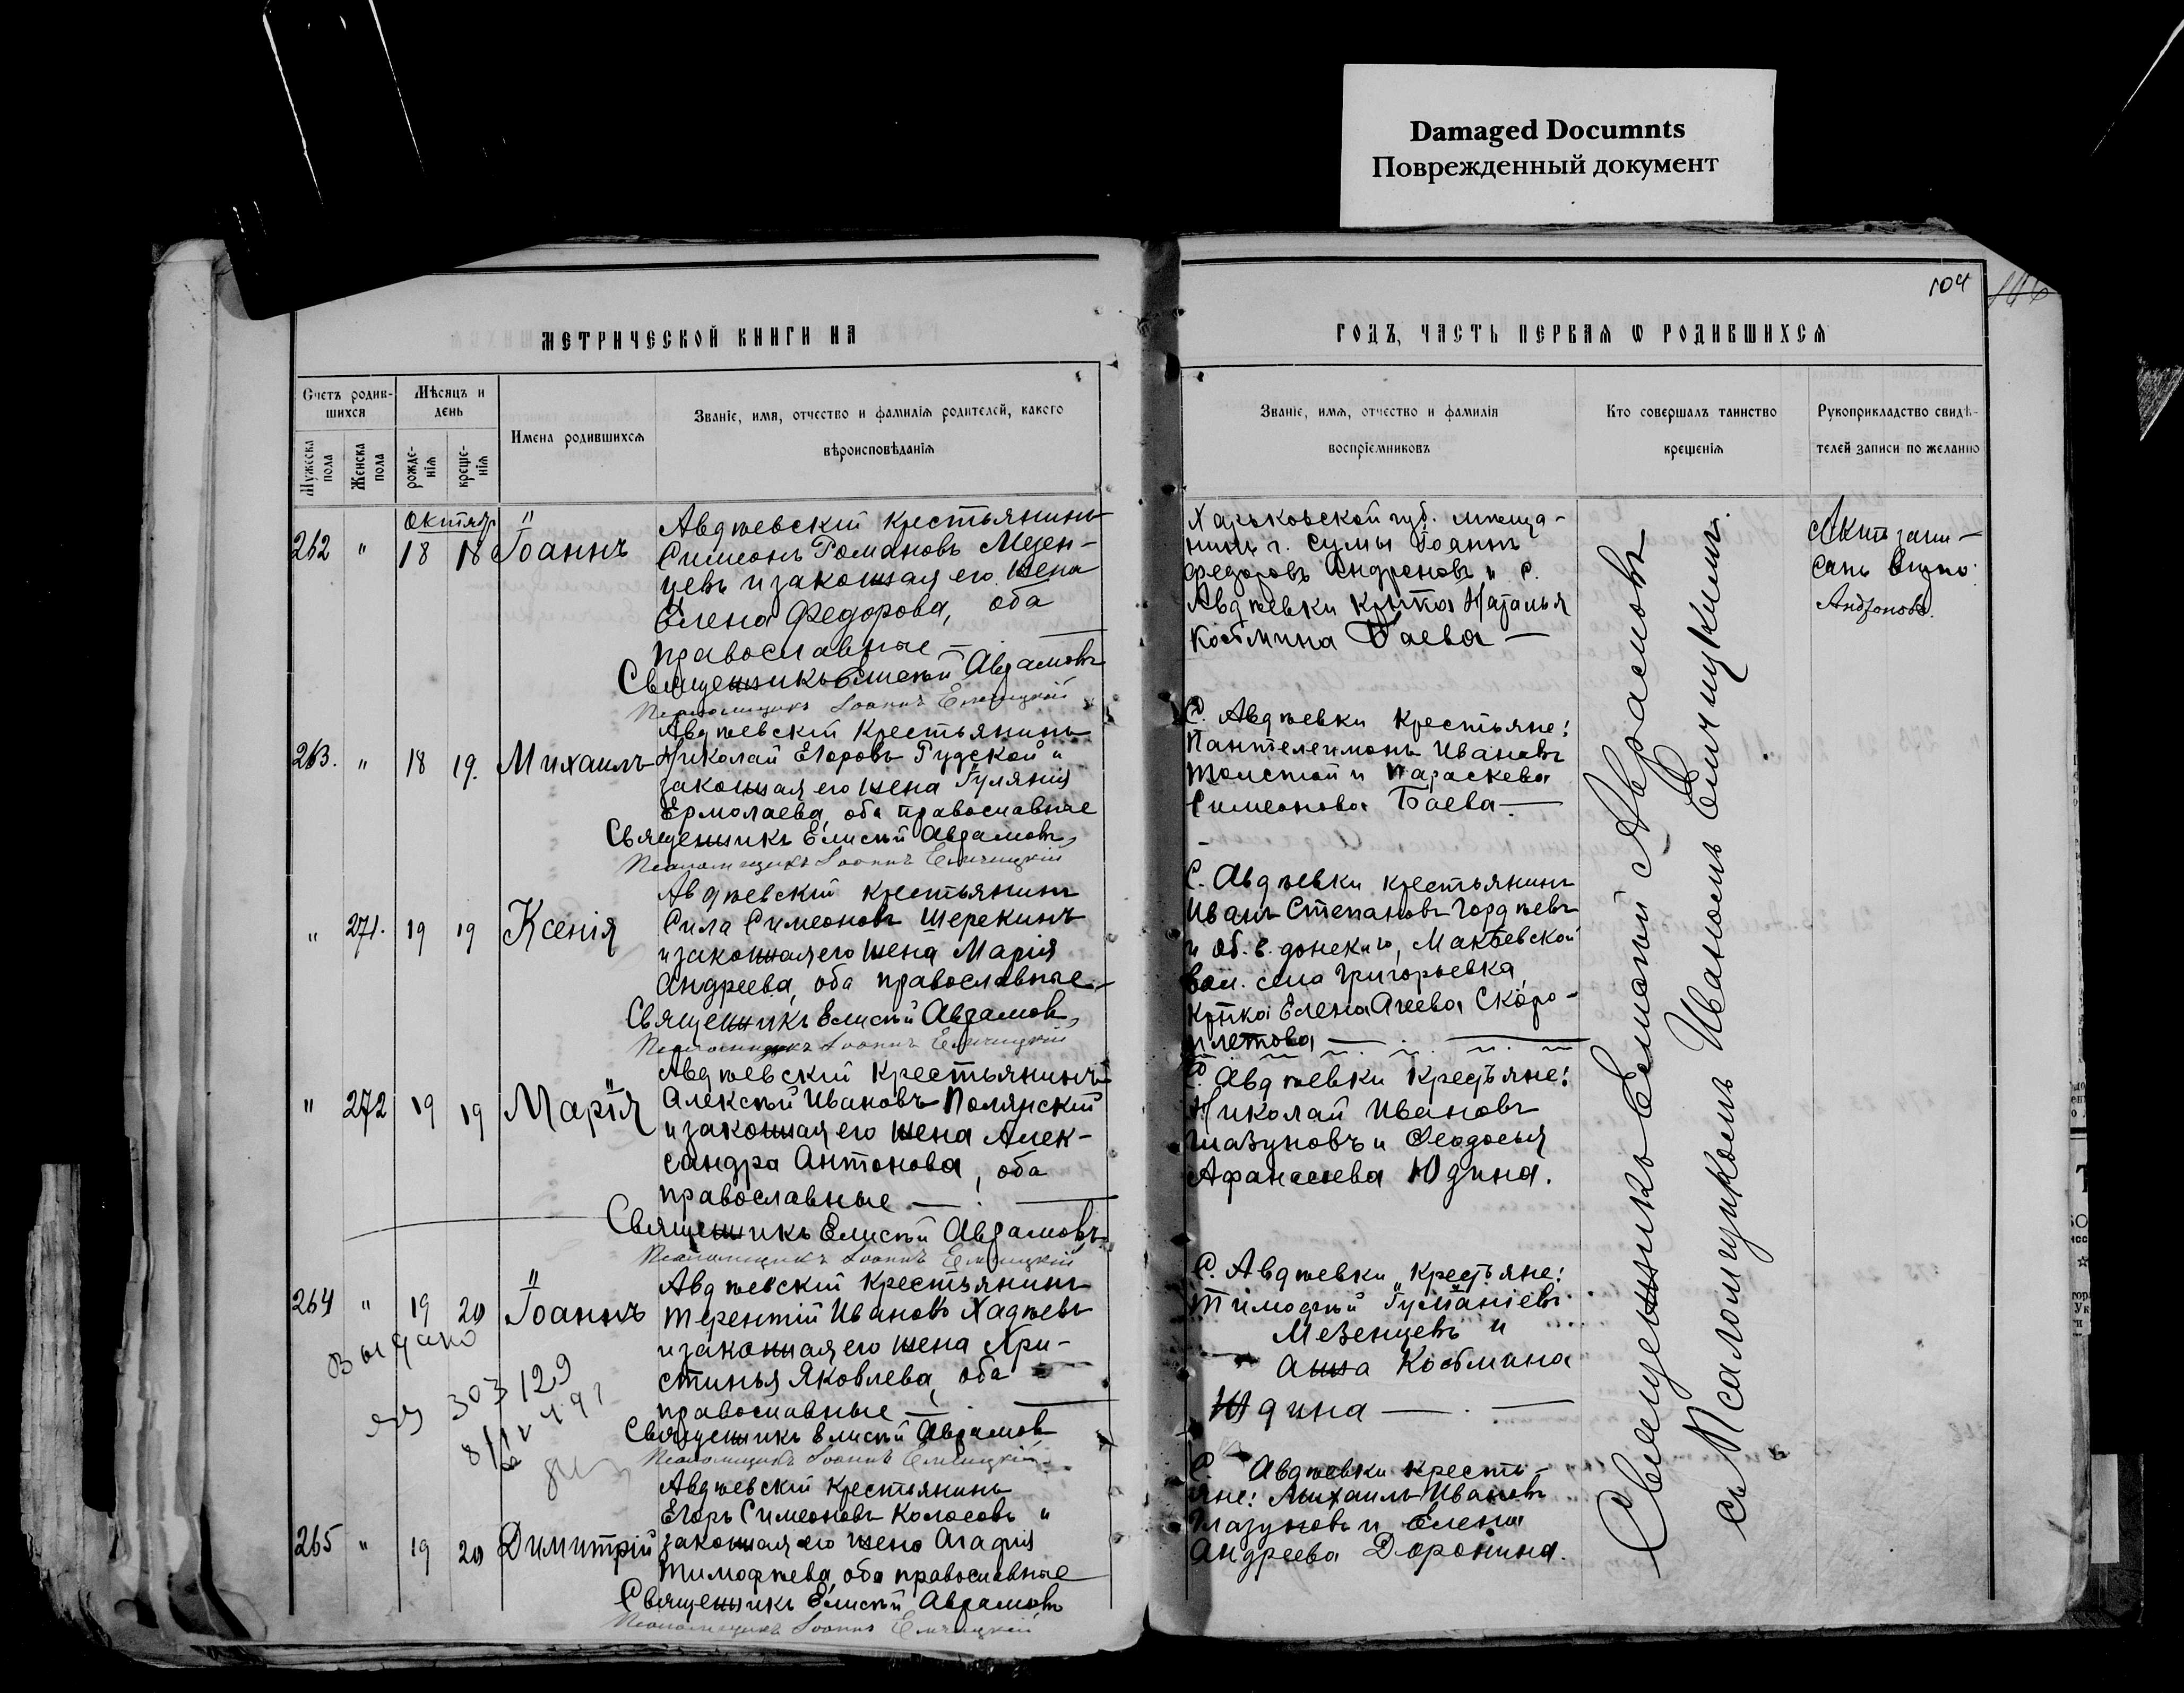 Damaged Documnts
Поврежденный документ
104
МЕТРИЧЕСКОЙ КНИГИ НА
ГОДЪ, ЧАСТЬ ПЕРВАЯ Ѡ РОДИВШИХСЯ
Счетъ родив-
шихся
Мѣсяцъ и
день
Мужеска
пола
Женска
пола
рожде-
нія
креще-
нія
Имена родившихся
Званіе, имя, отчество и фамилія родителей, какого
вѣроисповѣданія
Званіе, имя, отчество и фамилія
воспріемниковъ
Кто совершалъ таинство
крещенія
Рукоприкладство свидѣ-
телей записи по желанію
Октябр
262 " 18 18 Іоаннъ
Авдѣевскій крестьянинъ
Симеонъ Романовъ Мезен-
цевъ и законная его жена
Елена Федорова, оба
православные —
Священникъ Елисѣй Авраамовъ
Псаломщикъ Іоаннъ
Харьковской губ. мѣща-
нинъ г. Сумы Іоаннъ
Федоровъ Андреновъ и с.
Авдѣевки кр-нка Наталья
Косьмина Баева —
Актъ запи-
санъ
263. " 18 19. Михаилъ
Авдѣевскій Крестьянинъ
Николай Егоровъ Рудской и
законная его жена Іуліанія
Ермолаева, оба православные
Священникъ Елисѣй Авраамовъ
Псаломщикъ Іоаннъ
С. Авдѣевки Крестьяне:
Пантелеимонъ Ивановъ
Толстой и Параскева
Симеонова Баева —
" 271. 19 19 Ксенія
Авдѣевскій крестьянинъ
Сила Симеоновъ Шерекинъ
и законная его жена Марія
Андреева, оба православные —
Священникъ Елисѣй Авраамовъ
Псаломщикъ Іоаннъ
С. Авдѣевки крестьянинъ
Иванъ Степановъ Гордѣевъ
и об. в. донского, Макеевской
вол. села Григорьевка
кр-нка Елена Агеева Скоро-
летова —
" 272 19 19 Марія
Авдѣевскій Крестьянинъ
Алексѣй Ивановъ Полянскій
и законная его жена Алек-
сандра Антонова, оба
православные —
Священникъ Елисѣй Авраамовъ
Псаломщикъ Іоаннъ
С. Авдѣевки Крестьяне:
Николай Ивановъ
Глазуновъ и Феодосья
Афанасьева Юдина.
264 " 19 20 Іоаннъ
Выдано
303129
Авдѣевскій Крестьянинъ
Терентій Ивановъ Хадѣевъ
и законная его жена Хри-
стинья Яковлева, оба
православные —
Священникъ Елисѣй Авраамовъ
Псаломщикъ Іоаннъ
С. Авдѣевки Крестьяне:
Тимофѣй
Мезенцевъ и
Анна Косьмина
Юдина —
265 " 19 20 Димитрій
Авдѣевскій Крестьянинъ
Егоръ Симеоновъ Колосовъ и
законная его жена Агафія
Тимофѣева, оба православные
Священникъ Елисѣй Авраамовъ
Псаломщикъ Іоаннъ
С. Авдѣевки кресть-
яне: Михаилъ Ивановъ
Глазуновъ и Елена
Андреева Доронина.
Священникъ Елисѣй Авраамовъ
съ Псаломщикомъ Иваномъ